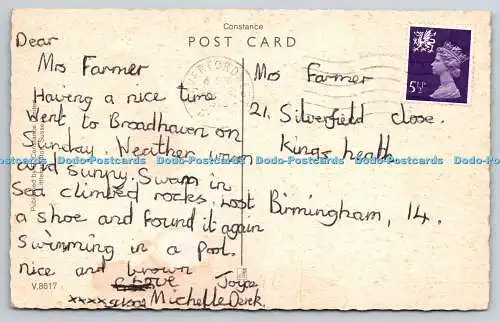 Constance
POST CARD
Dear
Mrs Farmer
Having a nice time
Went to Broadhaven on
Sunday. Weather warm
and sunny. Swam in
Sea climbed rocks. Lost
a shoe and found it again
Swimming in a pool.
nice and brown
Love Joyce
xxxx Michelle Derek.
Mrs Farmer
21. Silverfield close.
Kings heath
Birmingham, 14.
5½P
V.8617
Dodo-Postcards Dodo-Postcards Dodo-Postcards Dodo-Postcards Dodo-Postcards